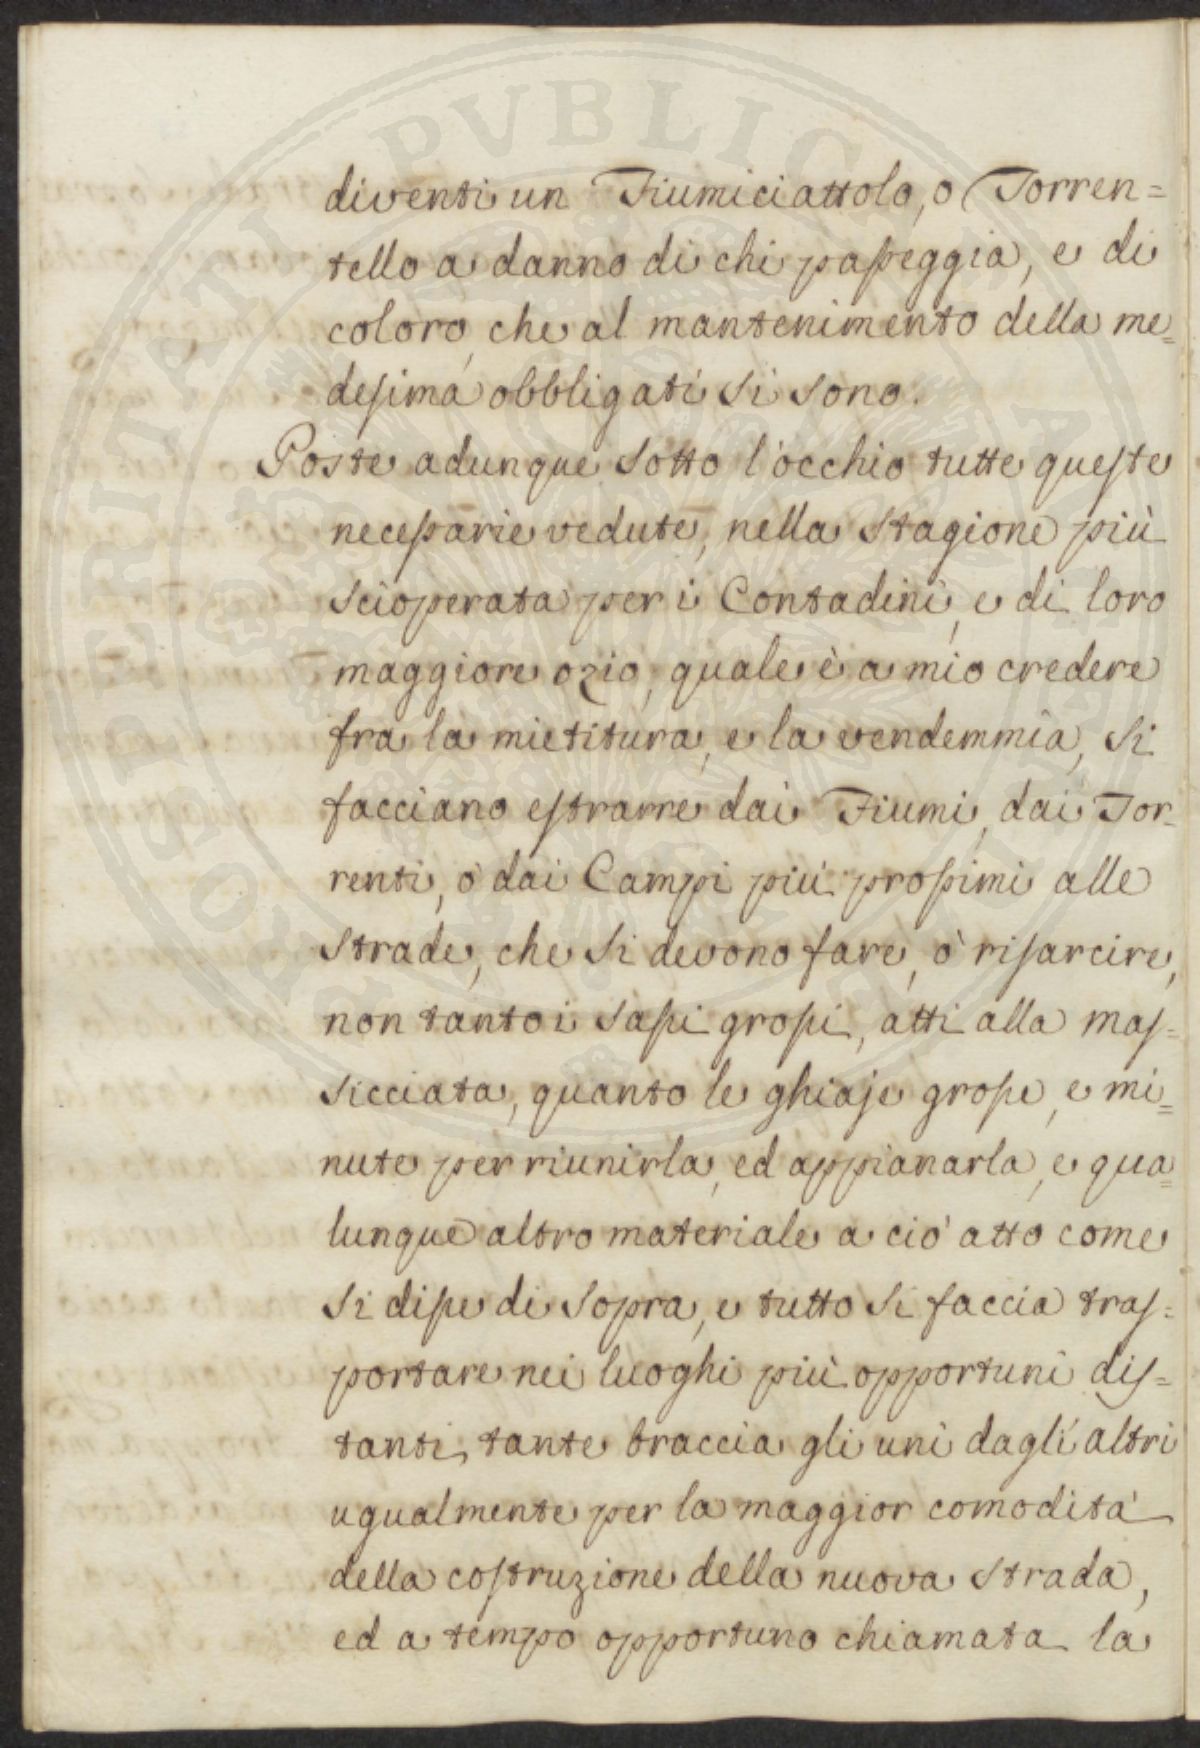 diventi un Fiumiciattolo, o Torren=
tello a danno di chi passeggia, e di
coloro, che al mantenimento della me=
desima obbligati si sono.
Poste adunque sotto l'occhio tutte queste
necessarie vedute, nella stagione più
scioperata per i Contadini, e di loro
maggiore ozio, quale è a mio credere
fra la mietitura, e la vendemmia, si
facciano estrarre dai Fiumi, dai Tor=
renti, ò dai Campi più prossimi alle
strade, che si devono fare, ò risarcire,
non tanto i sassi grossi, atti alla mas=
sicciata, quanto le ghiaje grosse, e mi=
nute per riunirla, ed appianarla, e qua=
lunque altro materiale a ciò atto come
si disse di sopra, e tutto si faccia tras=
portare nei luoghi più opportuni dis=
tanti, tante braccia gli uni dagli altri
ugualmente per la maggior comodità
della costruzione della nuova strada,
ed a tempo opportuno chiamata la
PROSPERITATI PUBLICAE